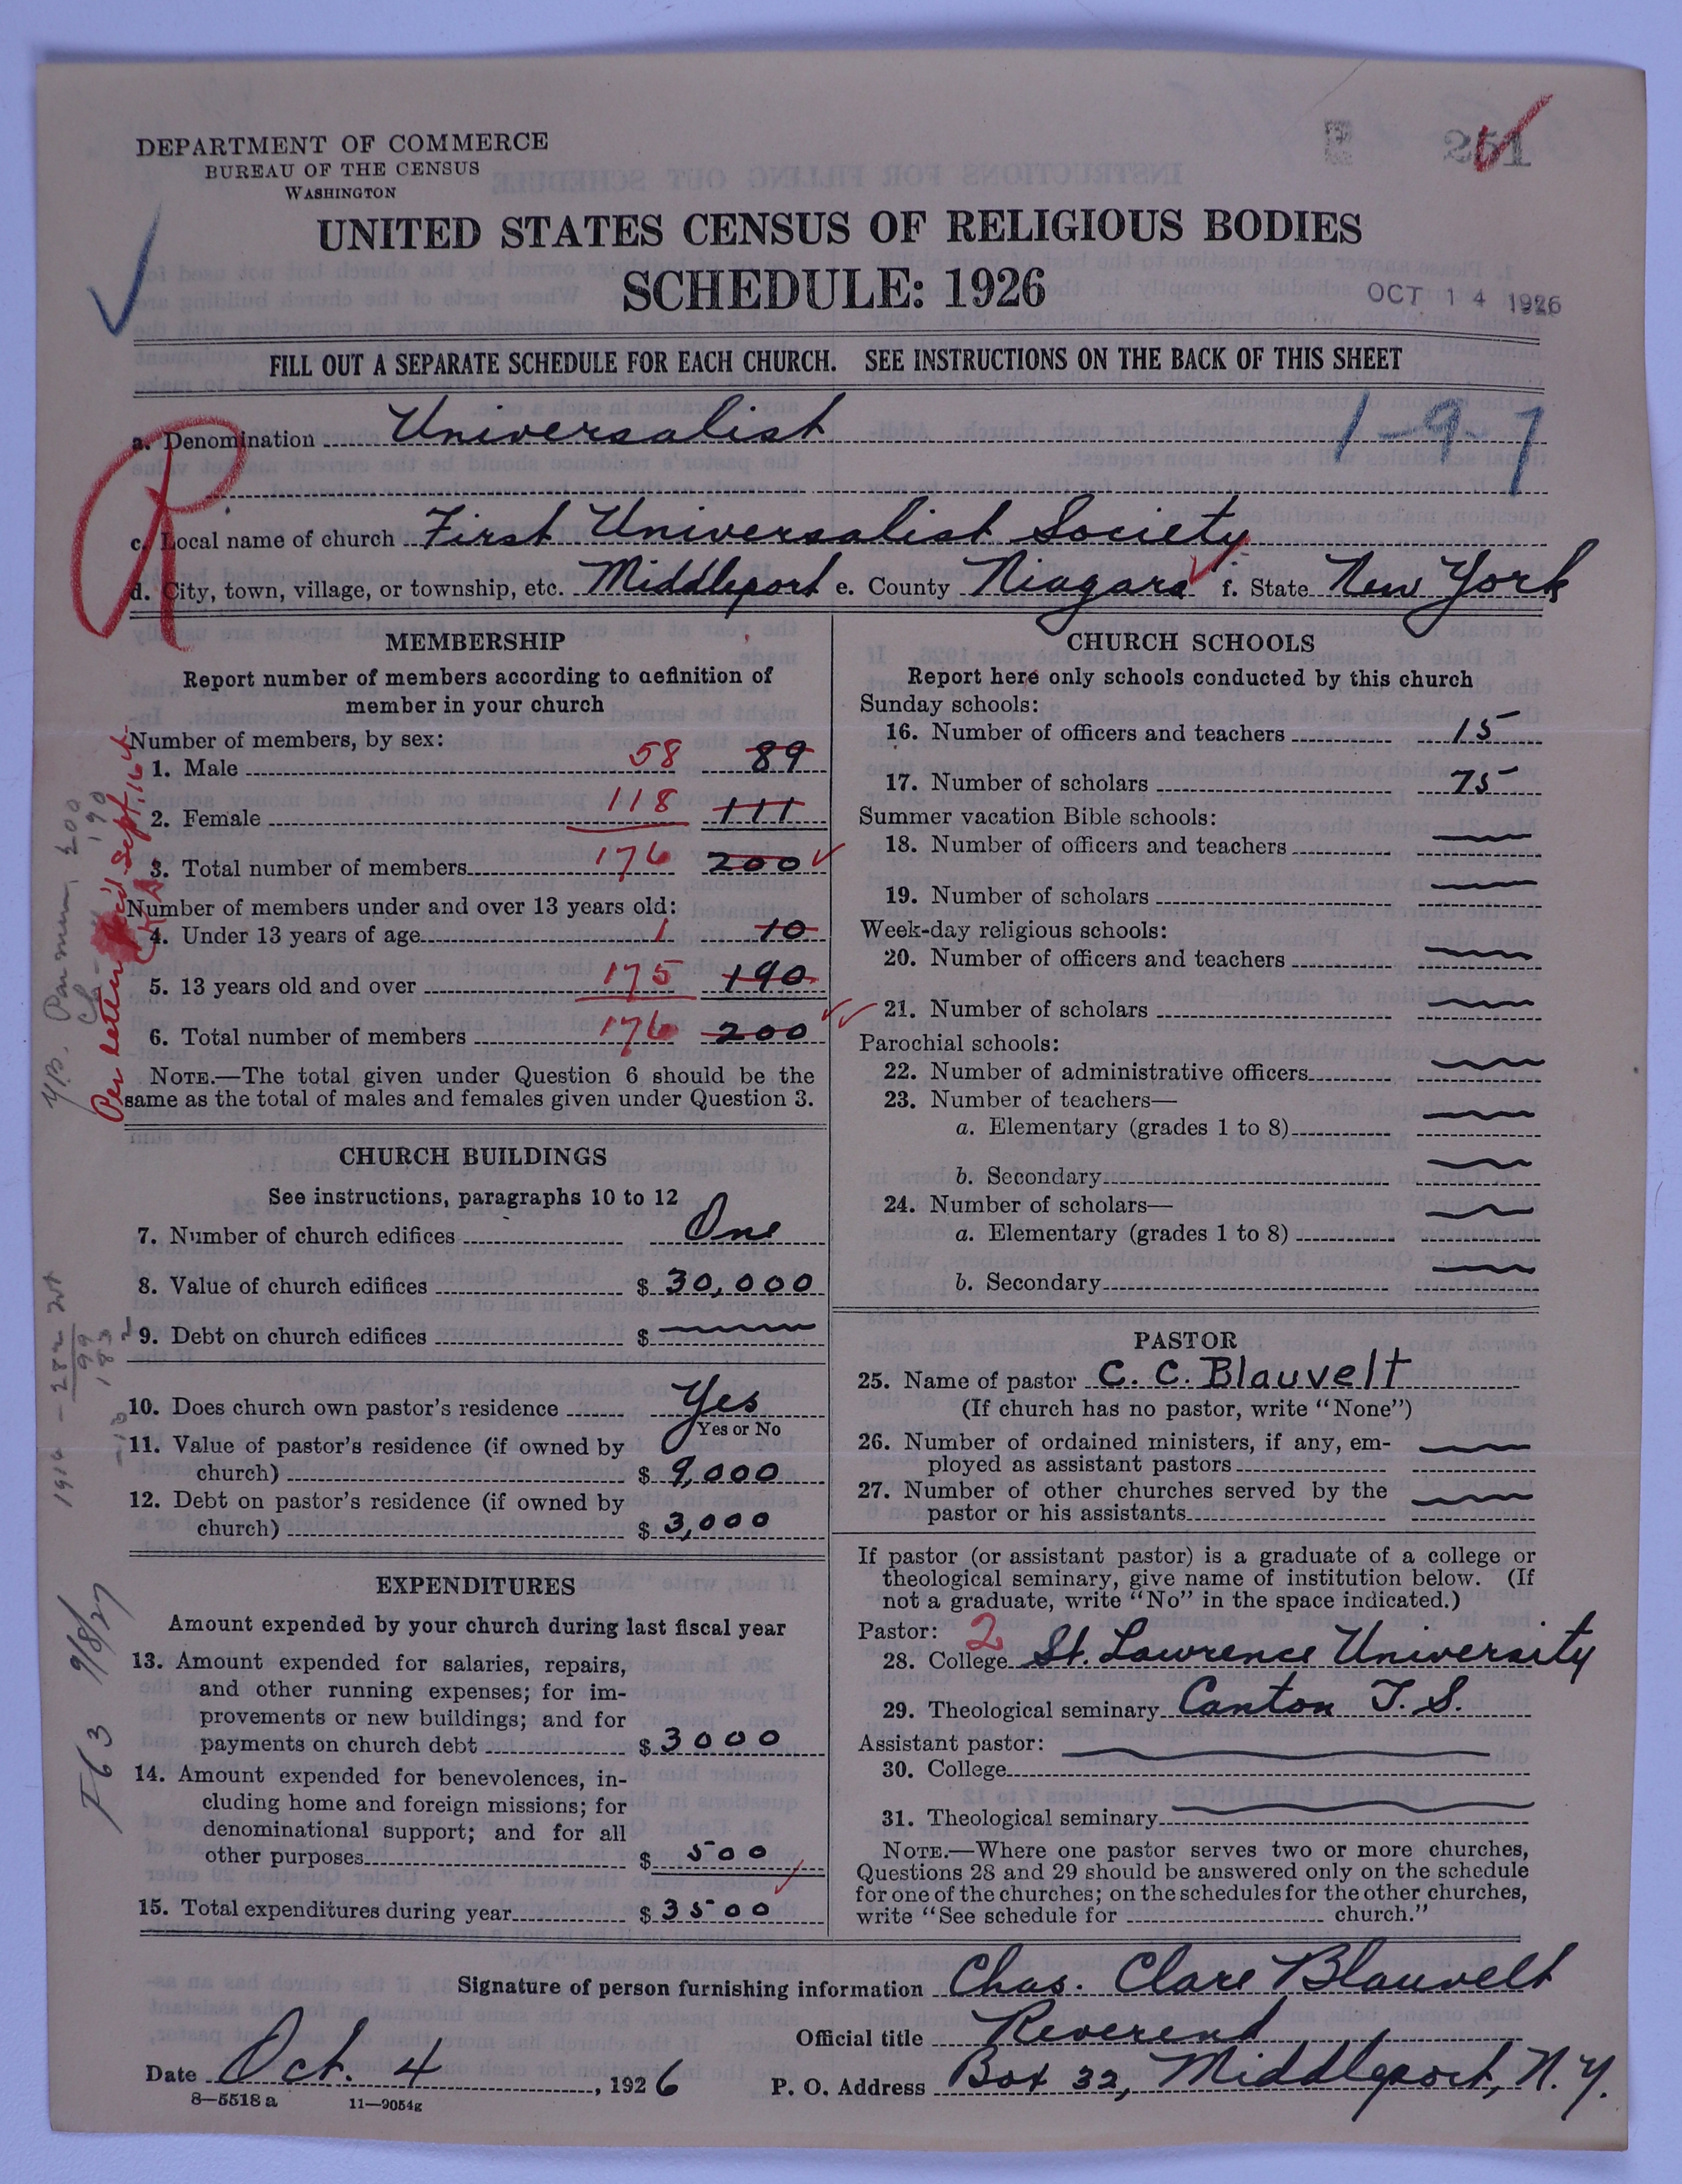 251
DEPARTMENT OF COMMERCE
BUREAU OF THE CENSUS
WASHINGTON
UNITED STATES CENSUS OF RELIGIOUS BODIES
SCHEDULE: 1926
OCT 14 1926
FILL OUT A SEPARATE SCHEDULE FOR EACH CHURCH. SEE INSTRUCTIONS ON THE BACK OF THIS SHEET
a. Denomination Universalist 1-9-7
R
c. Local name of church First Universalist Society
d. City, town, village, or township, etc. Middleport e. County Niagara f. State New York
MEMBERSHIP
Report number of members according to definition of
member in your church
Number of members, by sex:
1. Male 58 89
2. Female 118 111
3. Total number of members 176 200
Number of members under and over 13 years old:
4. Under 13 years of age 1 10
5. 13 years old and over 175 190
6. Total number of members 176 200
NOTE.—The total given under Question 6 should be the
same as the total of males and females given under Question 3.
CHURCH BUILDINGS
See instructions, paragraphs 10 to 12
7. Number of church edifices One
8. Value of church edifices $ 30,000
9. Debt on church edifices $
10. Does church own pastor's residence Yes
Yes or No
11. Value of pastor's residence (if owned by
church) $ 9,000
12. Debt on pastor's residence (if owned by
church) $ 3,000
EXPENDITURES
Amount expended by your church during last fiscal year
13. Amount expended for salaries, repairs,
and other running expenses; for im-
provements or new buildings; and for
payments on church debt $ 3000
14. Amount expended for benevolences, in-
cluding home and foreign missions; for
denominational support; and for all
other purposes $ 500
15. Total expenditures during year $ 3500
CHURCH SCHOOLS
Report here only schools conducted by this church
Sunday schools:
16. Number of officers and teachers 15
17. Number of scholars 75
Summer vacation Bible schools:
18. Number of officers and teachers
19. Number of scholars
Week-day religious schools:
20. Number of officers and teachers
21. Number of scholars
Parochial schools:
22. Number of administrative officers
23. Number of teachers—
a. Elementary (grades 1 to 8)
b. Secondary
24. Number of scholars—
a. Elementary (grades 1 to 8)
b. Secondary
PASTOR
25. Name of pastor C. C. Blauvelt
(If church has no pastor, write "None")
26. Number of ordained ministers, if any, em-
ployed as assistant pastors
27. Number of other churches served by the
pastor or his assistants
If pastor (or assistant pastor) is a graduate of a college or
theological seminary, give name of institution below. (If
not a graduate, write "No" in the space indicated.)
Pastor: 2
28. College St. Lawrence University
29. Theological seminary Canton T. S.
Assistant pastor:
30. College
31. Theological seminary
NOTE.—Where one pastor serves two or more churches,
Questions 28 and 29 should be answered only on the schedule
for one of the churches; on the schedules for the other churches,
write "See schedule for church."
Signature of person furnishing information Chas. Clare Blauvelt
Official title Reverend
Date Oct. 4, 1926 P. O. Address Box 32, Middleport, N. Y.
8—5518 a 11—9054g
Per letter Sept. 16
F63 9/8/27